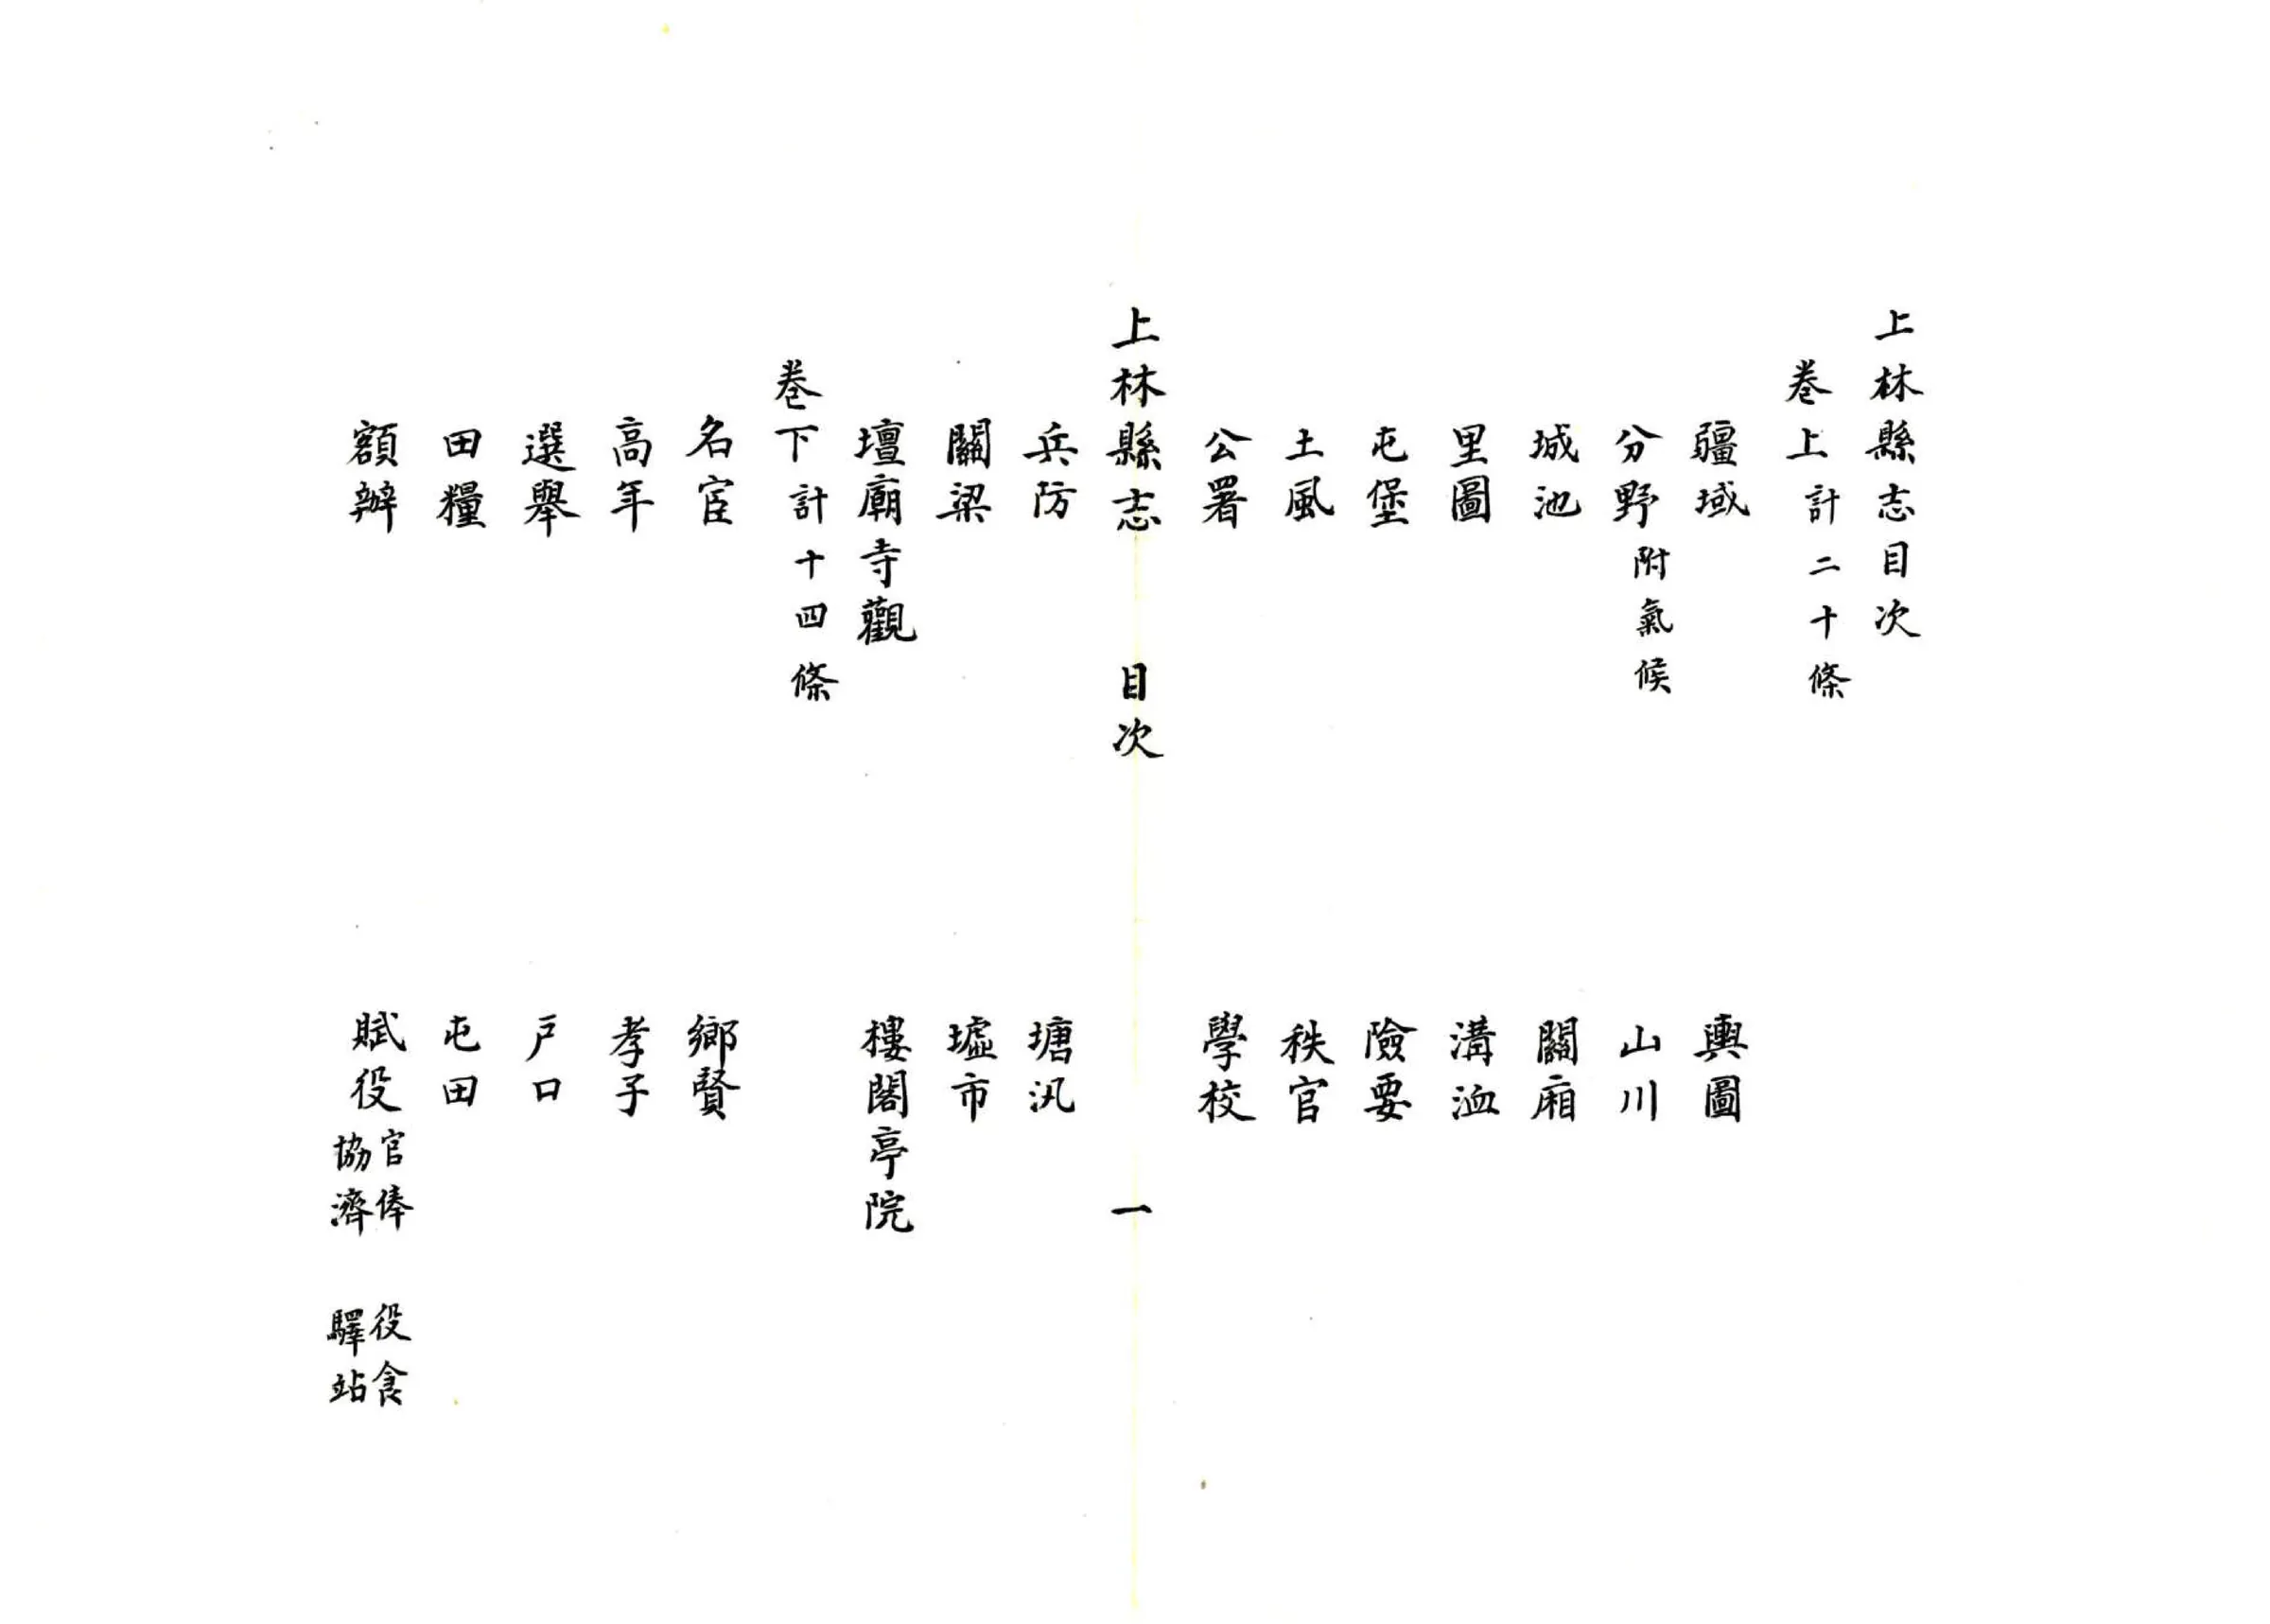 上林縣志目次
卷上計二十條
疆域 輿圖
分野附氣候 山川
城池 關廂
里圖 溝洫
屯堡 險要
土風 秩官
公署 學校
上林縣志 目次 一
兵防 塘汛
關梁 墟市
壇廟寺觀 樓閣亭院
卷下計十四條
名宦 鄉賢
高年 孝子
選舉 戶口
田糧 屯田
額辦 賦役官俸 役食
協濟 驛站